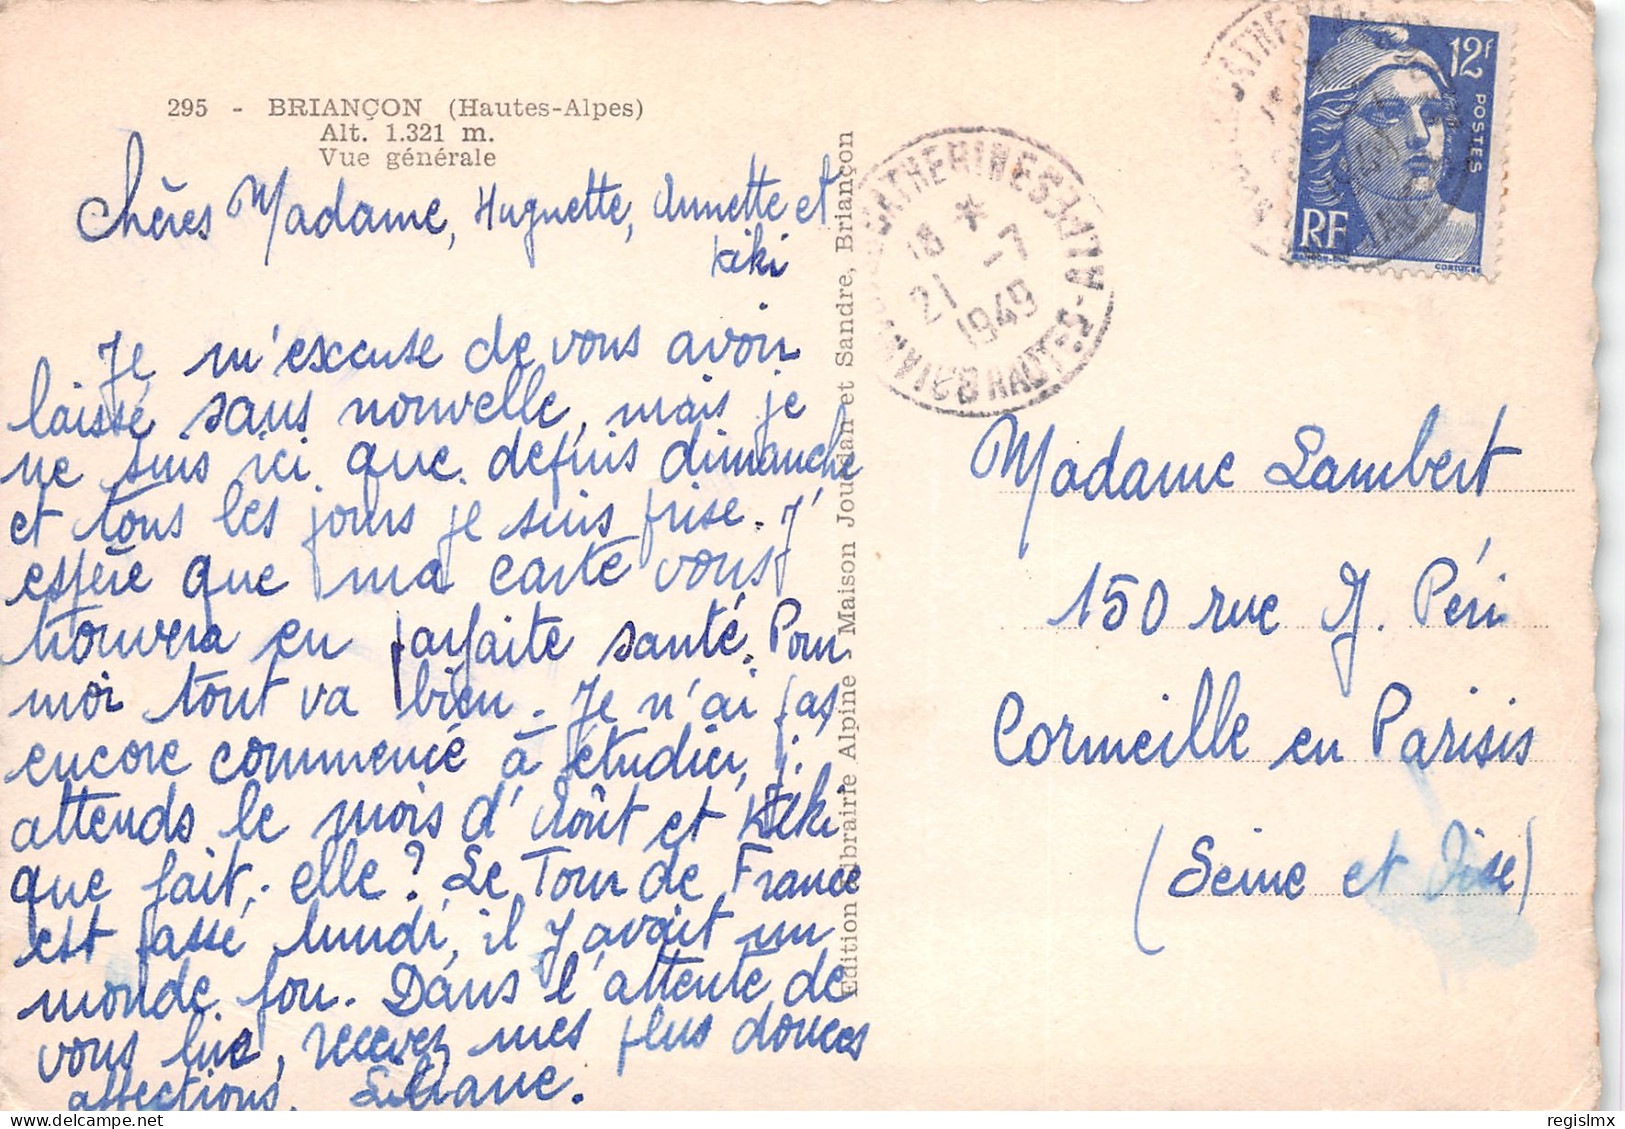 295 - BRIANÇON (Hautes-Alpes)
Alt. 1.321 m.
Vue générale
Chères Madame, Huguette, Annette et
Kiki
Je m'excuse de vous avoir
laissé sans nouvelle, mais je
ne suis ici que depuis dimanche
et tous les jours je suis prise. J'
espère que ma carte vous
trouvera en parfaite santé. Pour
moi tout va bien. Je n'ai pas
encore commencé à étudier, j'
attends le mois d'Août et Kiki
que fait-elle? Le Tour de France
est passé lundi, il y avait un
monde fou. Dans l'attente de
vous lire, recevez mes plus douces
affections. Liliane.
Edition Librairie Alpine - Maison Jourdan et Sandre, Briançon
CATHERINES
18 * 21 -7
1949
HAUTES-ALPES
12f
POSTES
RF
Madame Lambert
150 rue G. Péri
Cormeille en Parisis
(Seine et Oise)
regislmx
delcampe.net